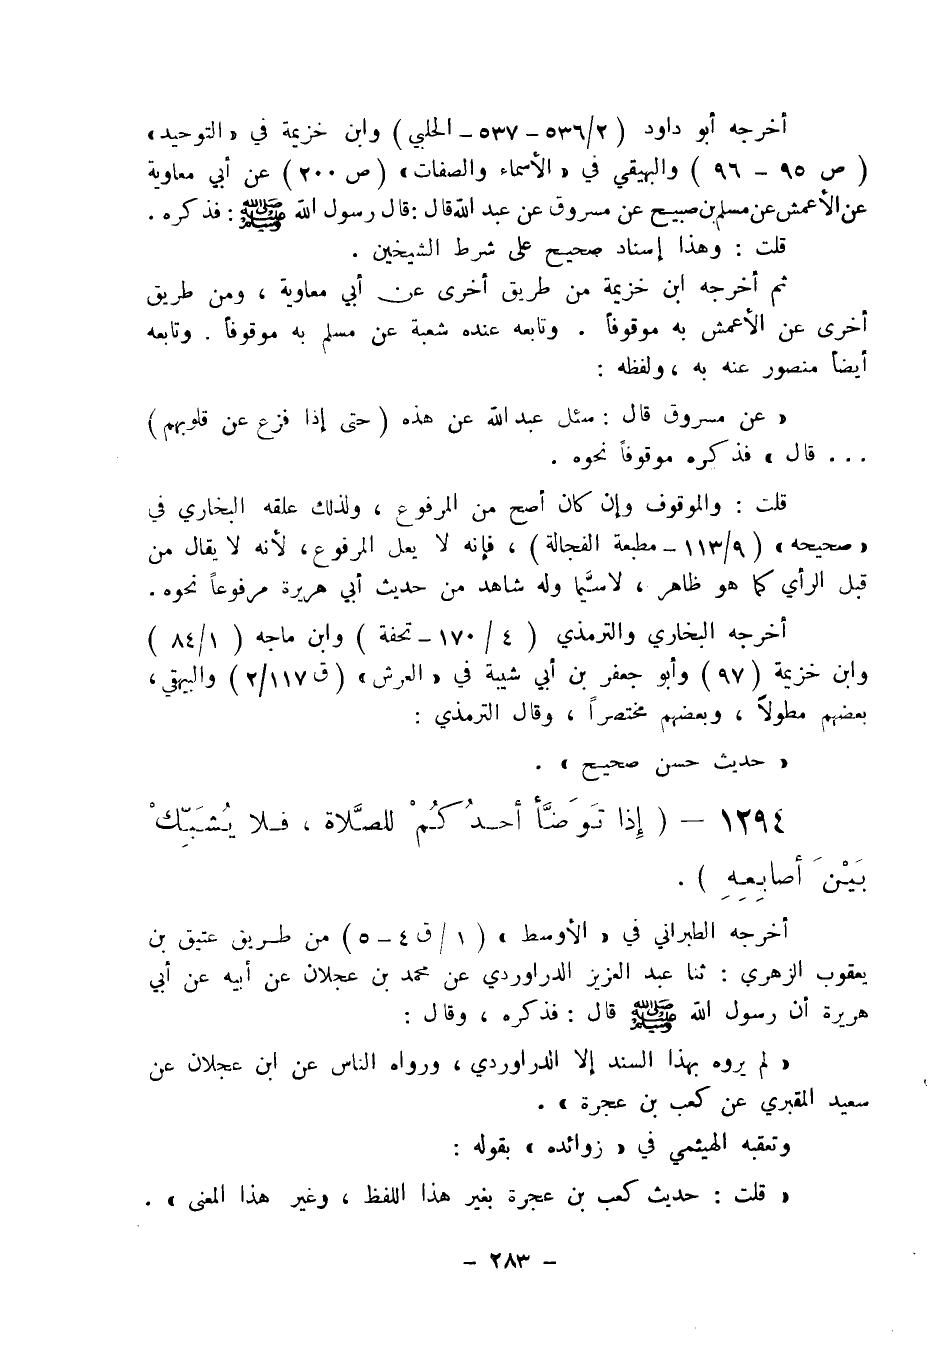 أخرجه أبو داود ( ٥٣٦/٢ - ٥٣٧ - الحلبي ) وابن خزيمة في « التوحيد »
( ص ٩٥ - ٩٦ ) والبهيقي في « الأسماء والصفات » ( ص ٢٠٠ ) عن أبي معاوية
عن الأعمش عن مسلم بن صبيح عن مسروق عن عبد الله قال : قال رسول الله ﷺ : فذكره .
قلت : وهذا إسناد صحيح على شرط الشيخين .
ثم أخرجه ابن خزيمة من طريق أخرى عن أبي معاوية ، ومن طريق
أخرى عن الأعمش به موقوفاً . وتابعه عنده شعبة عن مسلم به موقوفاً . وتابعه
أيضاً منصور عنه به ، ولفظه :
« عن مسروق قال : سئل عبد الله عن هذه ( حتى إذا فزع عن قلوبهم )
... قال » فذكره موقوفاً نحوه .
قلت : والموقوف وإن كان أصح من المرفوع ، ولذلك علقه البخاري في
« صحيحه » ( ١١٣/٩ - مطبعة الفجالة ) ، فإنه لا يعل المرفوع ، لأنه لا يقال من
قبل الرأي كما هو ظاهر ، لاسيَّما وله شاهد من حديث أبي هريرة مرفوعاً نحوه .
أخرجه البخاري والترمذي ( ٤ / ١٧٠ - تحفة ) وابن ماجه ( ٨٤/١ )
وابن خزيمة ( ٩٧ ) وأبو جعفر بن أبي شيبة في « العرش » ( ق ٢/١١٧ ) والبيهقي ،
بعضهم مطولاً ، وبعضهم مختصراً ، وقال الترمذي :
« حديث حسن صحيح » .
١٢٩٤ - ( إِذا تَوَضَّأ أحدُكُمْ للصَّلاة ، فلا يُشَبِّكْ
بَيْنَ أصابِعِهِ ) .
أخرجه الطبراني في « الأوسط » ( ١ / ق ٤ - ٥ ) من طريق عتيق بن
يعقوب الزهري : ثنا عبد العزيز الدراوردي عن محمد بن عجلان عن أبيه عن أبي
هريرة أن رسول الله ﷺ قال : فذكره ، وقال :
« لم يروه بهذا السند إلا الدراوردي ، ورواه الناس عن ابن عجلان عن
سعيد المقبري عن كعب بن عجرة » .
وتعقبه الهيثمي في « زوائده » بقوله :
« قلت : حديث كعب بن عجرة بغير هذا اللفظ ، وغير هذا المعنى » .
- ٢٨٣ -